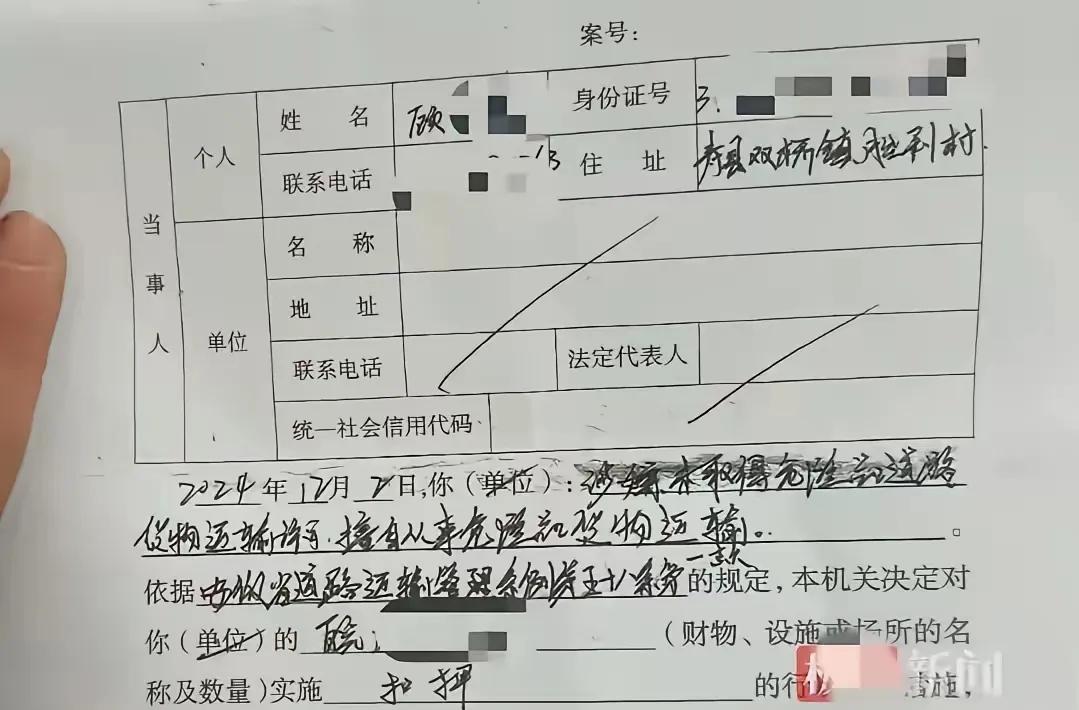 案号：
当事人
个人
姓 名 顾 身份证号 3.
联系电话 住 址 寿县双桥镇胜利村.
单位
名 称
地 址
联系电话 法定代表人
统一社会信用代码
2024年12月2日,你（单位）：涉嫌未取得危险品道路
货物运输许可,擅自从事危险品货物运输。
依据安徽省道路运输管理条例第五十八条第一款的规定，本机关决定对
你（单位）的 （财物、设施或场所的名
称及数量）实施 扣押 的行 措施，
新闻